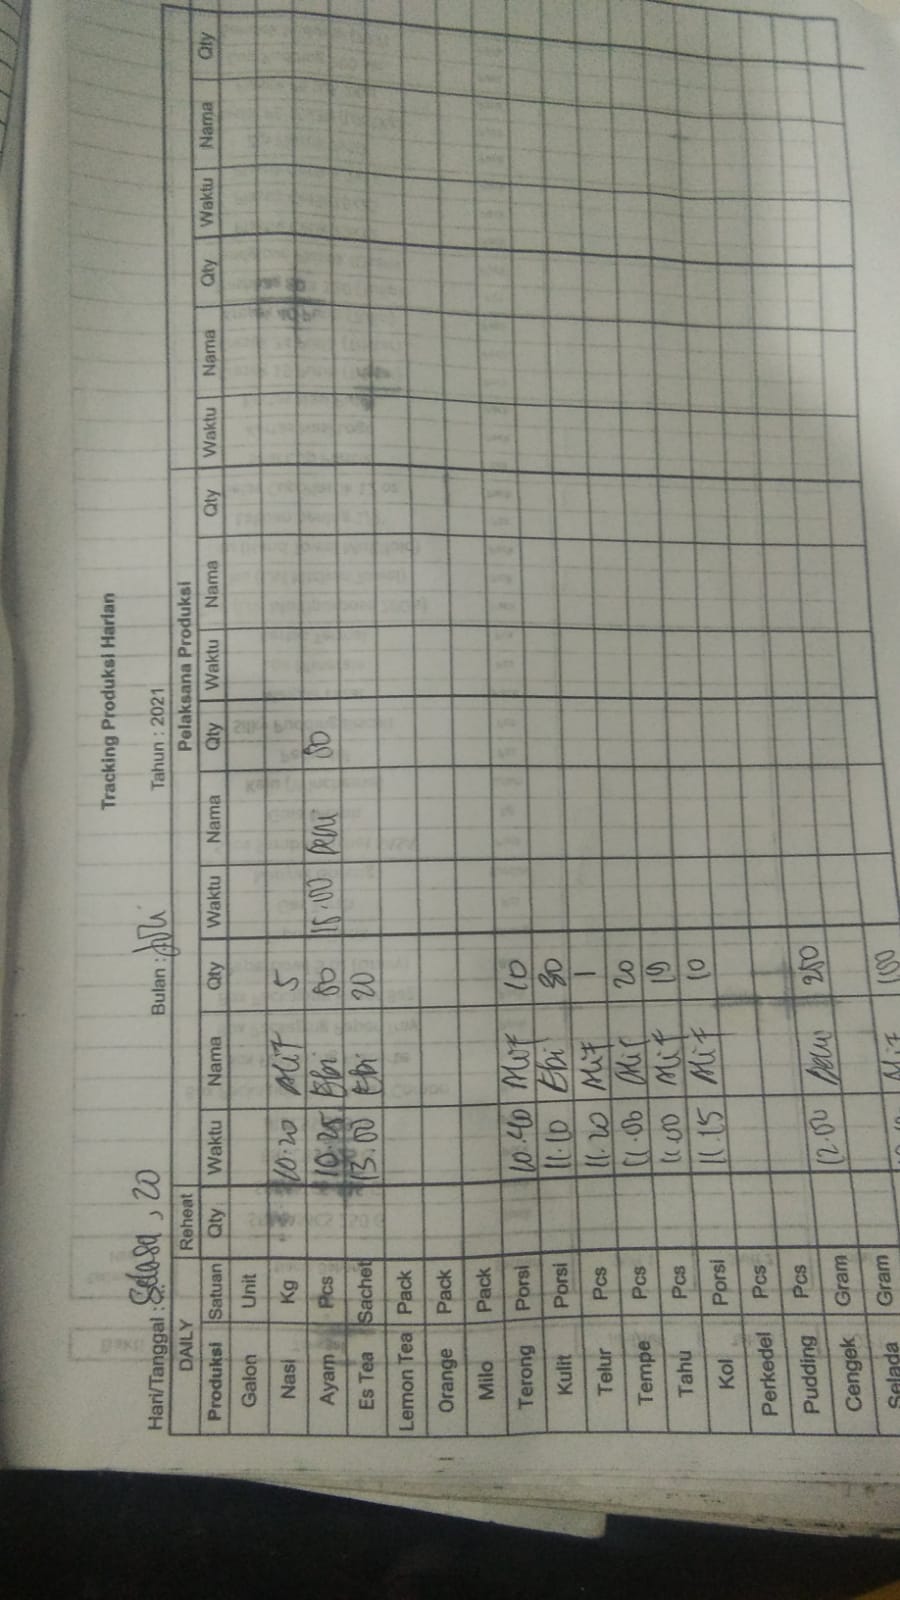 Tracking Produksi Harian
Hari/Tanggal : Selasa, 20 Bulan : Juli Tahun : 2021
DAILY Reheat Pelaksana Produksi
Produksi Satuan Qty Waktu Nama Qty Waktu Nama Qty Waktu Nama Qty Waktu Nama Qty Waktu Nama Qty
Galon Unit
Nasi Kg 10.20 Alif 5
Ayam Pcs 10.25 Ebi 80 15.00 Deni 80
Es Tea Sachet 13.00 Ebi 20
Lemon Tea Pack
Orange Pack
Milo Pack
Terong Porsi 10.40 Alif 10
Kulit Porsi 11.10 Ebi 30
Telur Pcs 11.20 Alif 1
Tempe Pcs 11.00 Alif 20
Tahu Pcs 11.00 Alif
Kol Porsi 11.15 Alif 10
Perkedel Pcs
Pudding Pcs 12.00 Deni 250
Cengek Gram
Selada Gram Alif 100